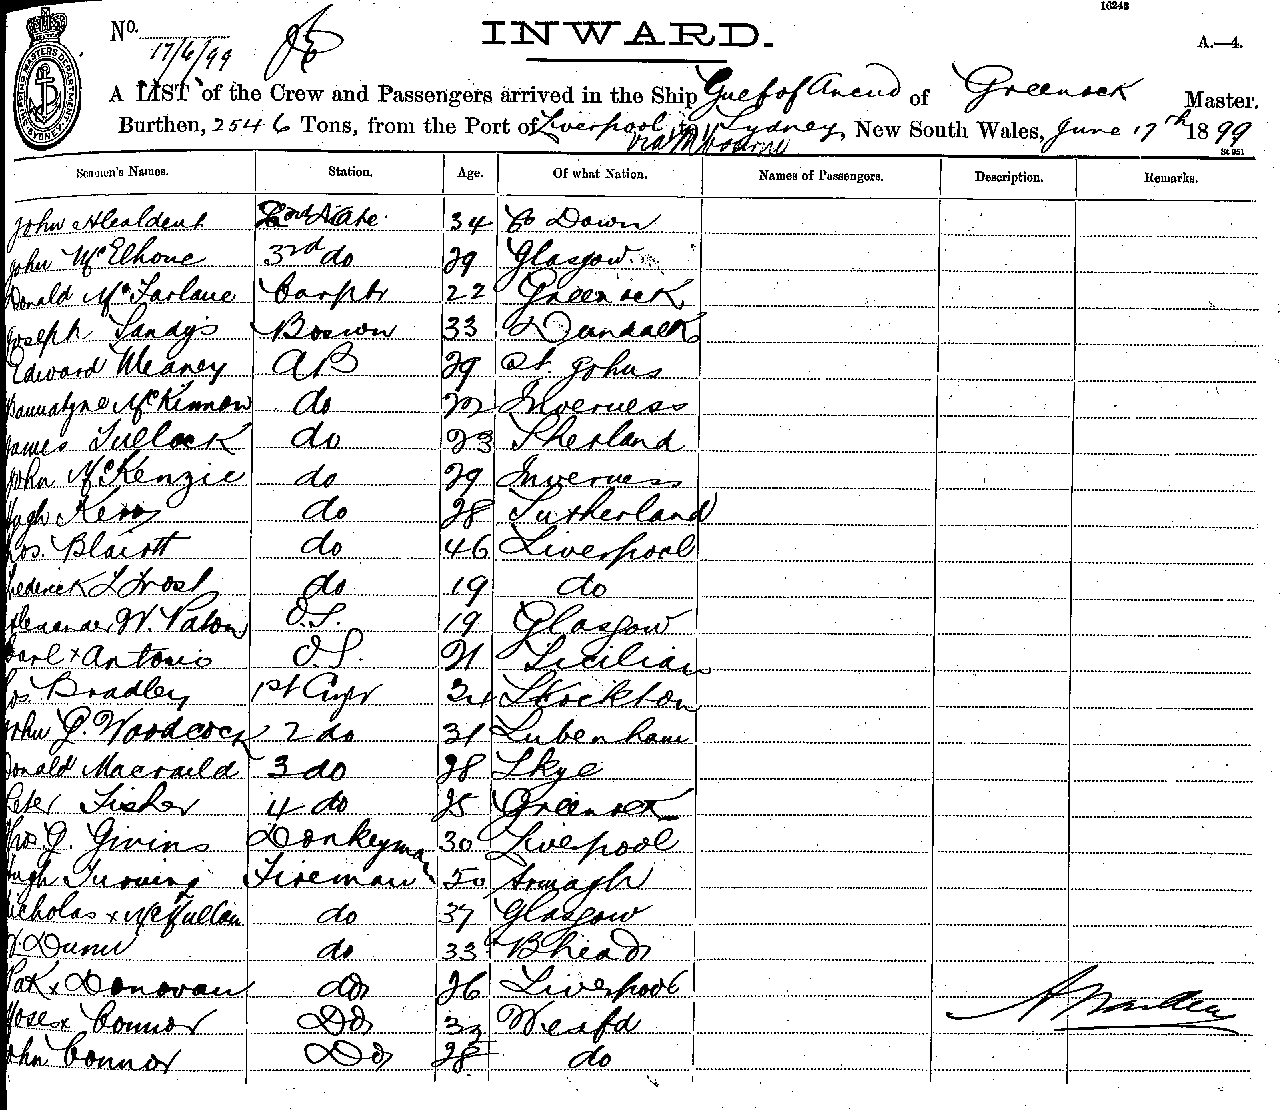 16243
No. 17/6/99
INWARD.
A.—4.
A LIST of the Crew and Passengers arrived in the Ship Gulf of of Greenock Master.
Burthen, 2546 Tons, from the Port of Liverpool to Sydney, New South Wales, June 17th 1899
via Melbourne
St 951
Seamen's Names. Station. Age. Of what Nation. Names of Passengers. Description. Remarks.
John 2nd Mate 34 Co Down
John McElhone 3rd do 29 Glasgow
Donald McFarlane Carptr 22 Greenock
Joseph Sandys Boswn 33 Dundalk
Edward Meaney AB 29 St. Johns
Bannatyne McKinnon do 22 Inverness
James Tullock do 23 Sherland
John McKenzie do 29 Inverness
Hugh Kerr do 28 Sutherland
Jos. do 46 Liverpool
Frederick L Frost do 19 do
Alexander W. Paton O.S. 19 Glasgow
Carl x Antonio O.S. 21 Sicilian
Jos Bradley 1st 34 Stockton
John G. Woodcock 2 do 31 Lubenham
Donald Macraild 3 do 28 Skye
Peter Fisher 4 do 25 Greenock
Thos G. Givins Donkeyman 30 Liverpool
Hugh Fireman 50 Armagh
Nicholas x McMullan do 37 Glasgow
Dunn do 33 B head
Pat x Donovan do 26 Liverpool
Moses x Connor Do 32 Wexfd
John Connor Do 28 do